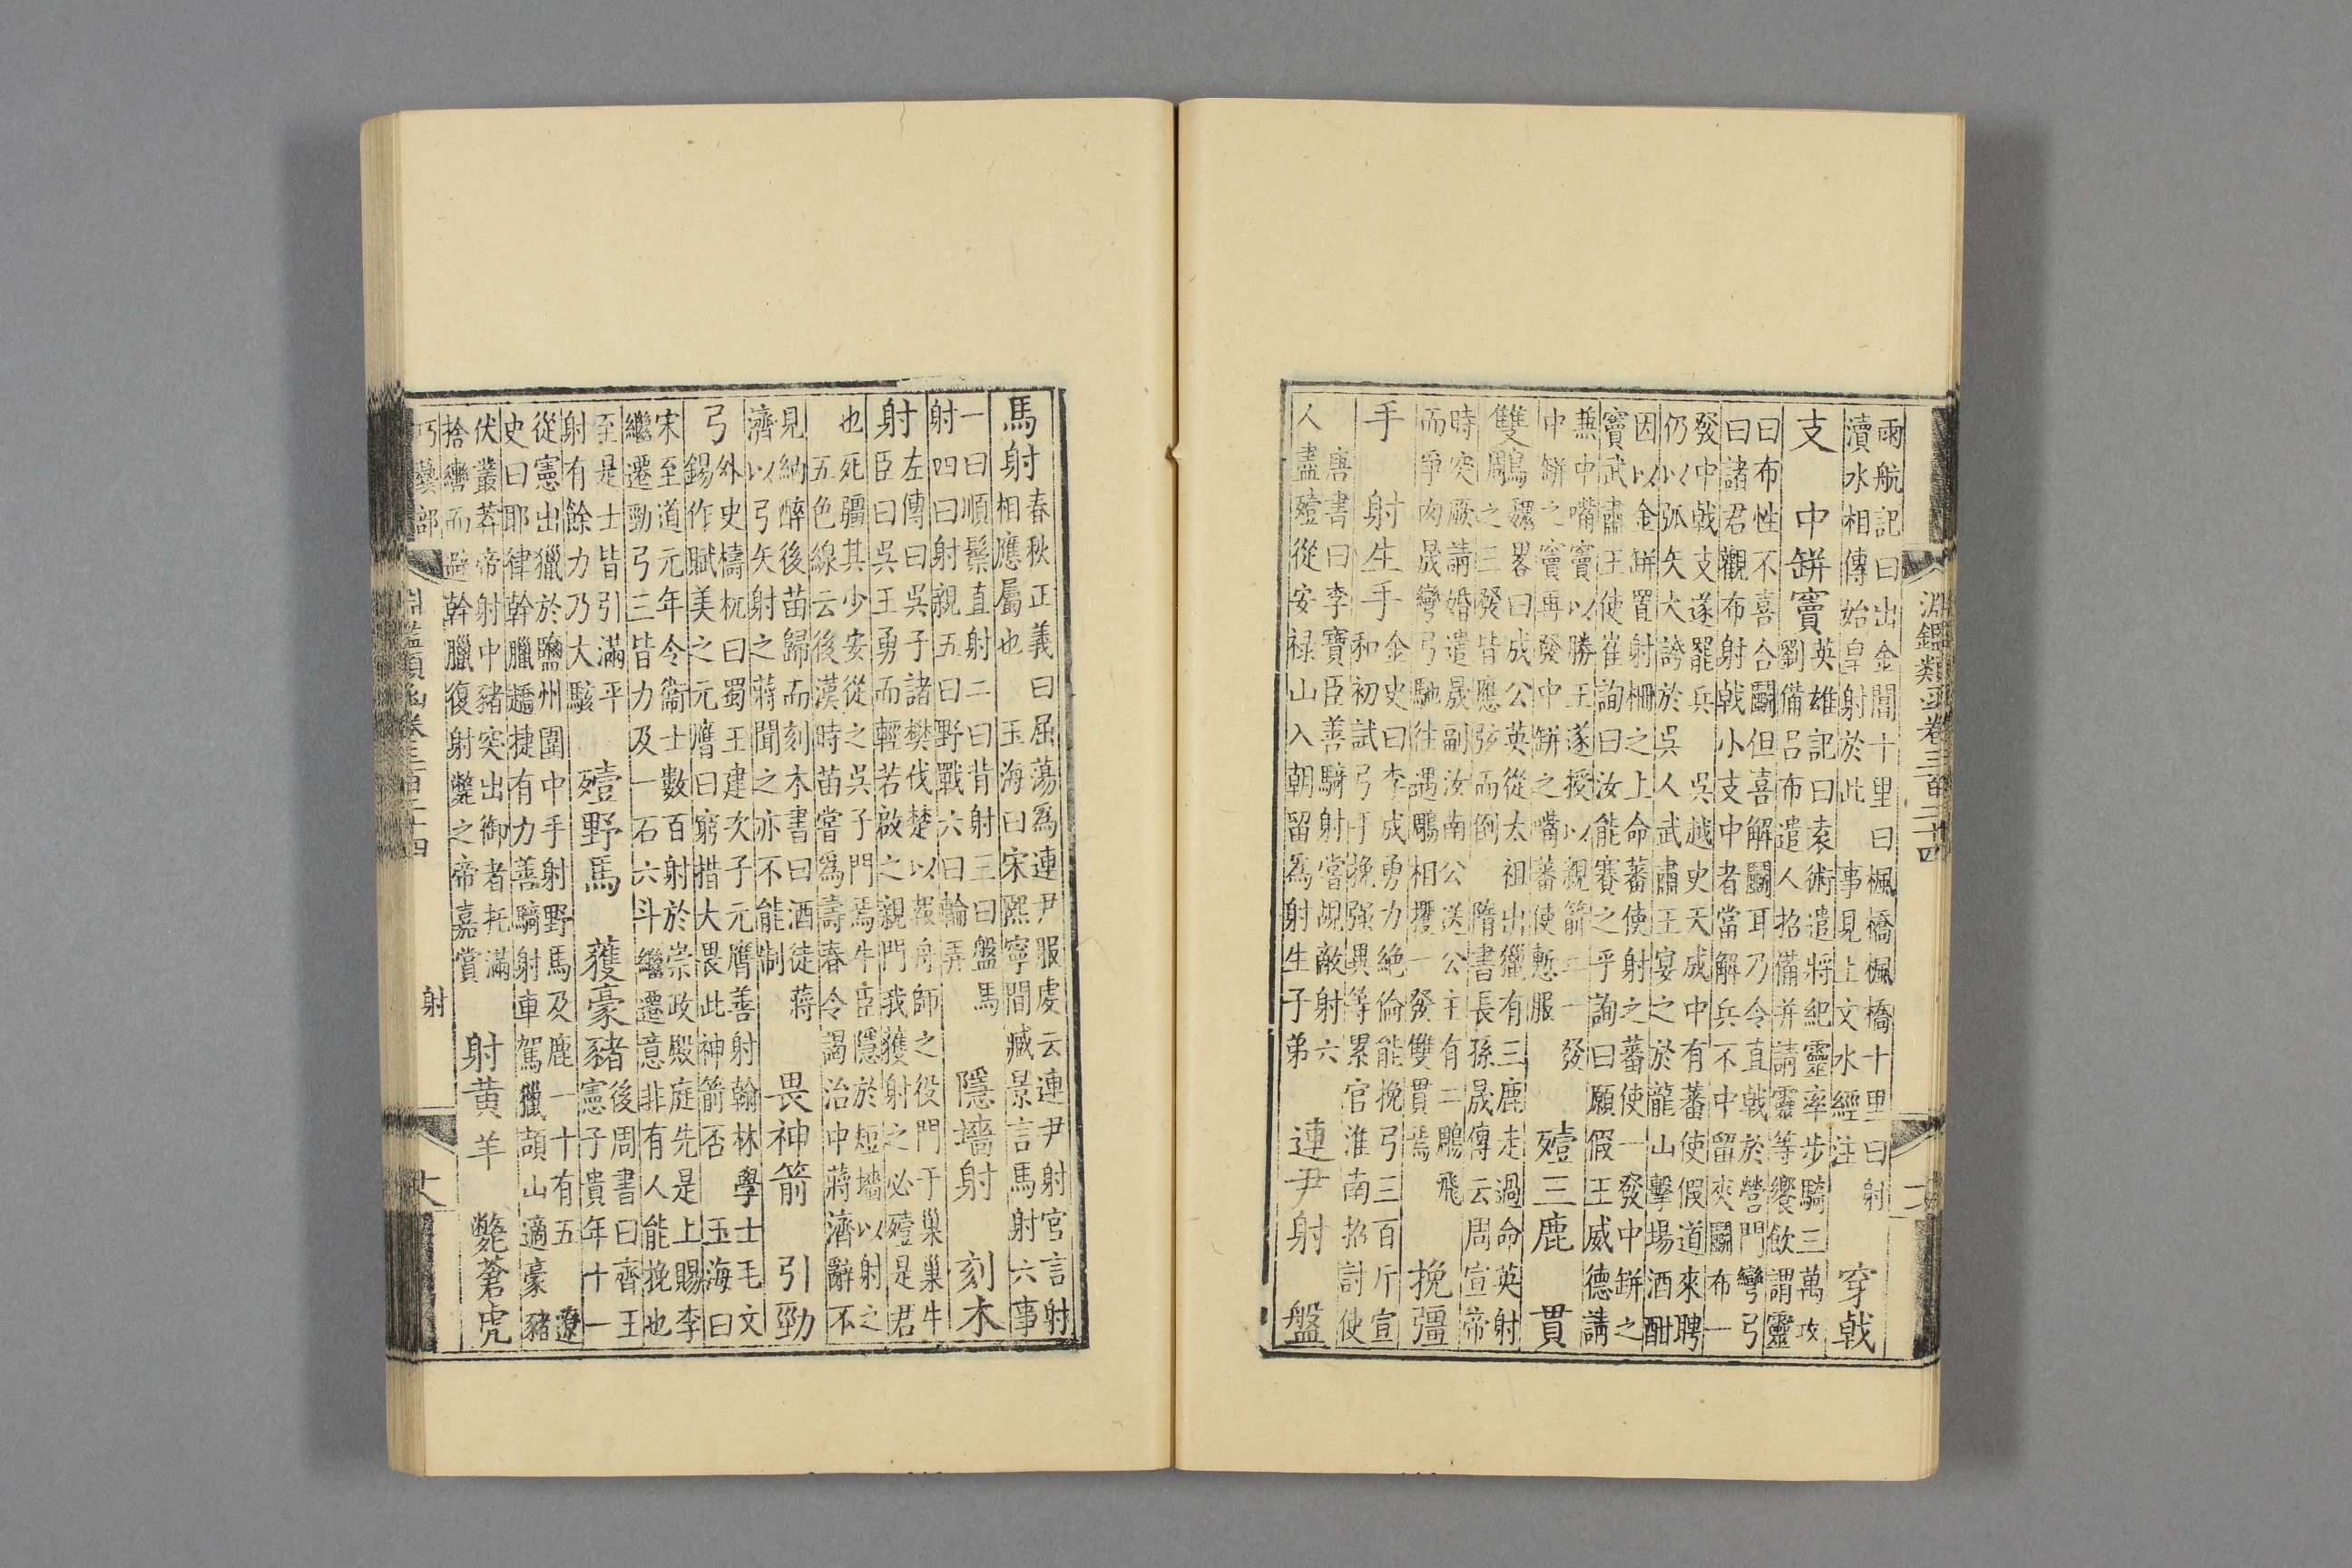 淵鑑類函卷三百二十四
雨航記曰出金閶十里曰楓橋楓橋十里曰射
瀆水相傳始皇射於此 事見上文水經注
穿戟
支 中缾竇
英雄記曰袁術遣將紀靈率步騎三萬攻
劉備呂布遣人招備并請靈等饗飲謂靈
曰布性不喜合鬬但喜解鬬耳乃令直戟於營門彎弓
曰諸君觀布射戟小支中者當解兵不中留夾鬬布一
發中戟支遂罷兵 吳越史天成中有蕃使假道來聘
仍以弧矢大誇於吳人武肅王宴之於龍山擊場酒酣
因以金缾置射柵之上命蕃使射之蕃使一發中缾之
竇武肅王使崔詢曰汝能賽之乎詢曰願假王威德請
兼中嘴竇以勝王遂授以親箭二一發
中缾之竇再發中缾之嘴蕃使慙服
殪三鹿 貫
雙鵰
魏畧曰成公英從太祖出獵有三鹿走過命英射
之三發皆應弦而倒 隋書長孫晟傳云周宣帝
時突厥請婚遣晟副汝南公送公主有二鵰飛
而爭肉晟彎弓馳往遇鵰相攫一發雙貫焉
挽彊
手 射生手
金史曰李成勇力絕倫能挽弓三百斤宣
和初試弓手挽强異等累官淮南招討使
唐書曰李寶臣善騎射嘗覘敵射六
人盡殪從安祿山入朝留爲射生子弟
連尹射 盤
馬射
春秋正義曰屈蕩爲連尹服虔云連尹射官言射
相應屬也 玉海曰宋熙寧間臧景言馬射六事
一曰順鬃直射二曰背射三曰盤馬
射四曰射親五曰野戰六曰輪弄
隱墻射 刻木
射
左傳曰吳子諸樊伐楚以報舟師之役門于巢巢牛
臣曰吳王勇而輕若啟之親門我獲射之必殪是君
也死疆其少安從之吳子門焉牛臣隱於短墻以射之
五色線云後漢時苗嘗爲壽春令謁治中蔣濟辭不
見納醉後苗歸而刻木書曰酒徒蔣
濟以弓矢射之蔣聞之亦不能制
畏神箭 引勁
弓
外史檮杌曰蜀王建次子元膺善射翰林學士毛文
錫作賦美之元膺曰窮措大畏此神箭否 玉海曰
宋至道元年令衞士數百射於崇政殿庭先是上賜李
繼遷勁弓三皆力及一石六斗繼遷意非有人能挽也
至是士皆引滿平
射有餘力乃大駭
殪野馬 獲豪豬
後周書曰齊王
憲子貴年十一
從憲出獵於鹽州圍中手射野馬及鹿一十有五 遼
史曰耶律斡臘趫捷有力善騎射車駕獵頡山適豪豬
伏叢莽帝射中豬突出御者托滿
捨轡而避斡臘復射斃之帝嘉賞
射黃羊 斃蒼虎
巧藝部 淵鑑類函卷三百二十四 射